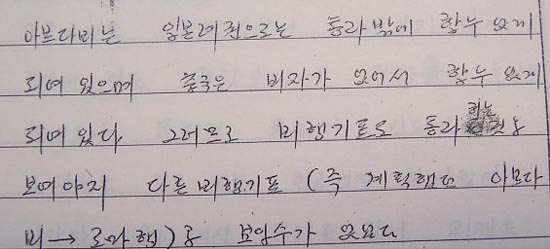 아브다비는 일본려권으로는 통과밖에 할수 없게
되여 있으며 중국은 비자가 없어서 할수 없게
되여있다 그러므로 비행기표도 통과하는 것을
보여야지 다른 비행기표 (즉 계획했던 아브다
비 → 로마행)을 보일수가 없었다